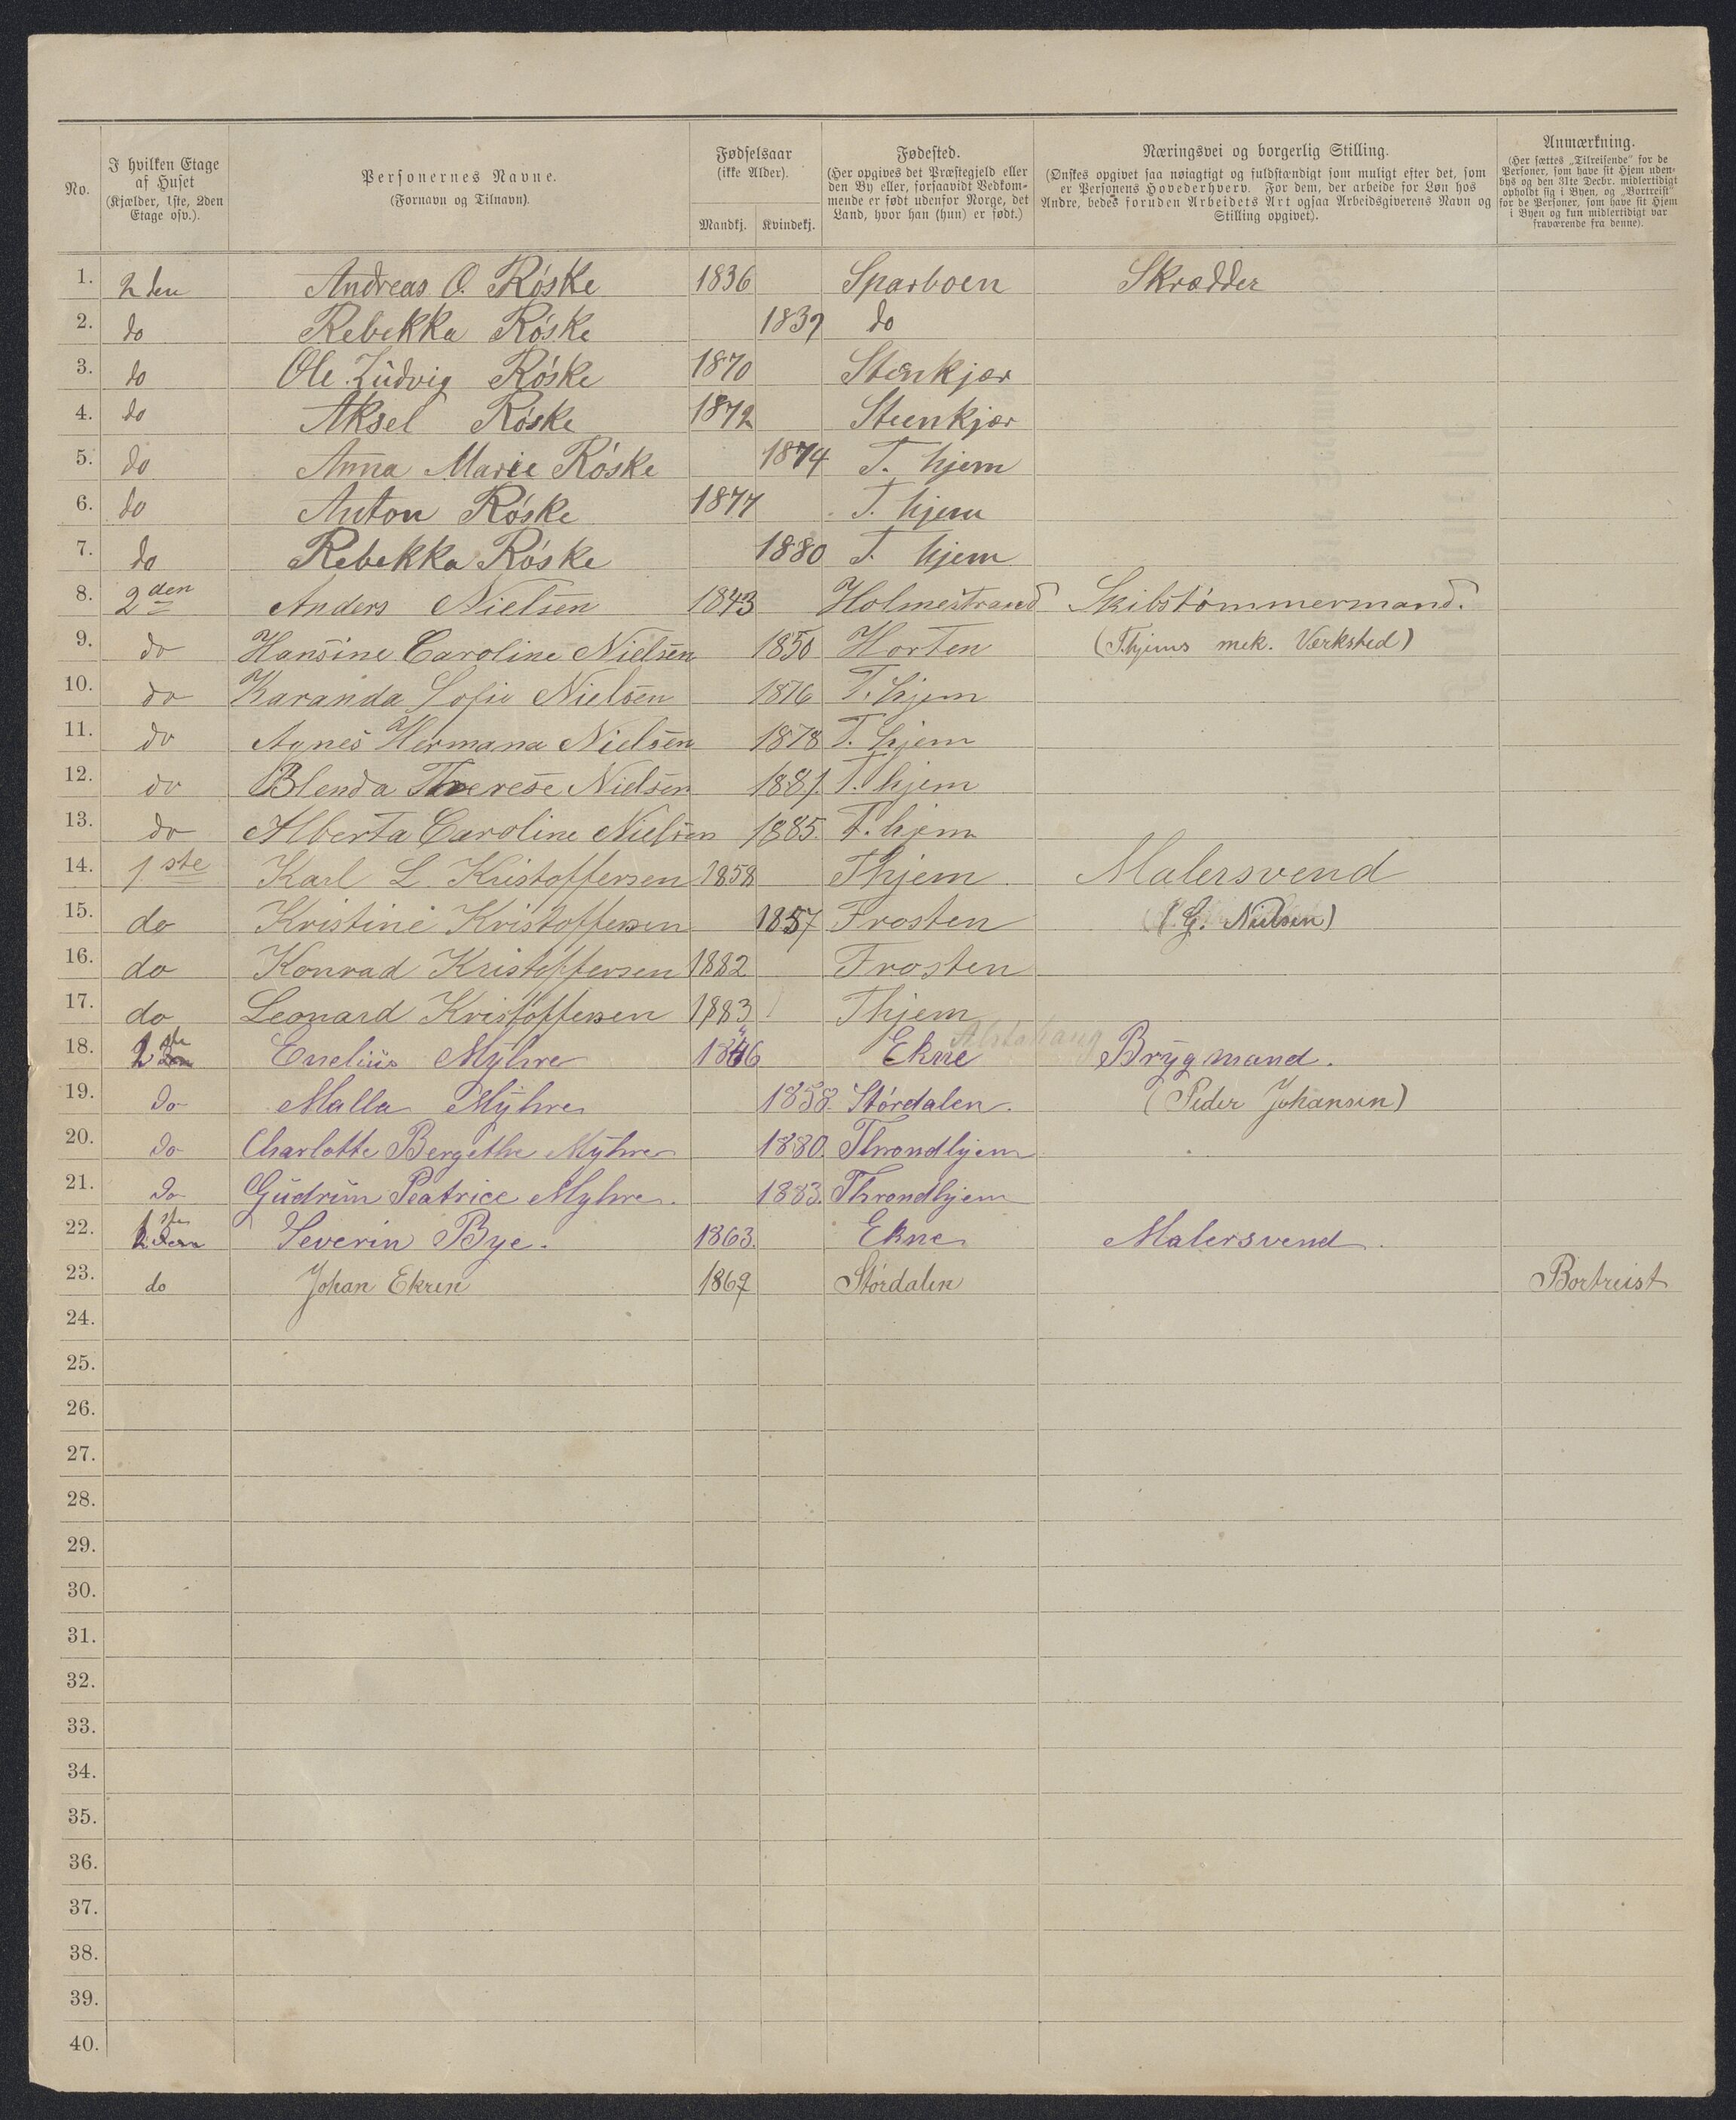 No.
I hvilken Etage af Huset (Kjælder, 1ste, 2den Etage osv.).
Personernes Navne. (Fornavn og Tilnavn).
Fødselsaar (ikke Alder). Mandkj. Kvindekj.
Fødested. (Her opgives det Præstegjeld eller den By eller, forsaavidt Vedkommende er født udenfor Norge, det Land, hvor han (hun) er født.)
Næringsvei og borgerlig Stilling. (Ønskes opgivet saa nøiagtigt og fuldstændigt som muligt efter det, som er Personens Hovederhverv. For dem, der arbeide for Løn hos Andre, bedes foruden Arbeidets Art ogsaa Arbeidsgiverens Navn og Stilling opgivet).
Anmærkning. (Her sættes „Tilreisende" for de Personer, som have sit Hjem udenbys og den 31te Decbr. midlertidigt opholdt sig i Byen, og „Bortreist" for de Personer, som have sit Hjem i Byen og kun midlertidigt var fraværende fra denne).
1. 2den Andreas O. Röske 1836 Sparboen Skrædder
2. do Rebekka Röske 1839 do
3. do Ole Ludvig Röske 1870 Stenkjær
4. do Aksel Röske 1872 Steenkjær
5. do Anna Marie Röske 1874 T. hjem
6. do Anton Röske 1877 T. hjem
7. do Rebekka Röske 1880 T. hjem
8. 2den Anders Nielsen 1843 Holmestrand Skibstömmermand.
9. do Hansine Caroline Nielsen 1850 Horten (Thjems mek. Værksted)
10. do Karanda Sofie Nielsen 1876 T. hjem
11. do Agnes Hermana Nielsen 1878 T. hjem
12. do Blenda Therese Nielsen 1881. T. hjem
13. do Alberta Caroline Nielsen 1885. T. hjem
14. 1ste Karl L. Kristoffersen 1858 Thjem Malersvend
15. do Kristine Kristoffersen 1857 Frosten (I. G. Nielsen)
16. do Konrad Kristoffersen 1882 Frosten
17. do Leonard Kristoffersen 1883 Thjem
18. 1ste Myhre 1846 Ekne Alstahaug Brygmand.
19. do Malla Myhre 1858. Stördalen. (Peder Johansen)
20. do Charlotte Bergethe Myhre 1880. Throndhjem
21. do Gudrun Peatrice Myhre. 1883. Throndhjem
22. 1ste Severin Bye. 1863. Ekne Malersvend.
23. do Johan Ekren 1869 Stördalen Bortreist
24.
25.
26.
27.
28.
29.
30.
31.
32.
33.
34.
35.
36.
37.
38.
39.
40.